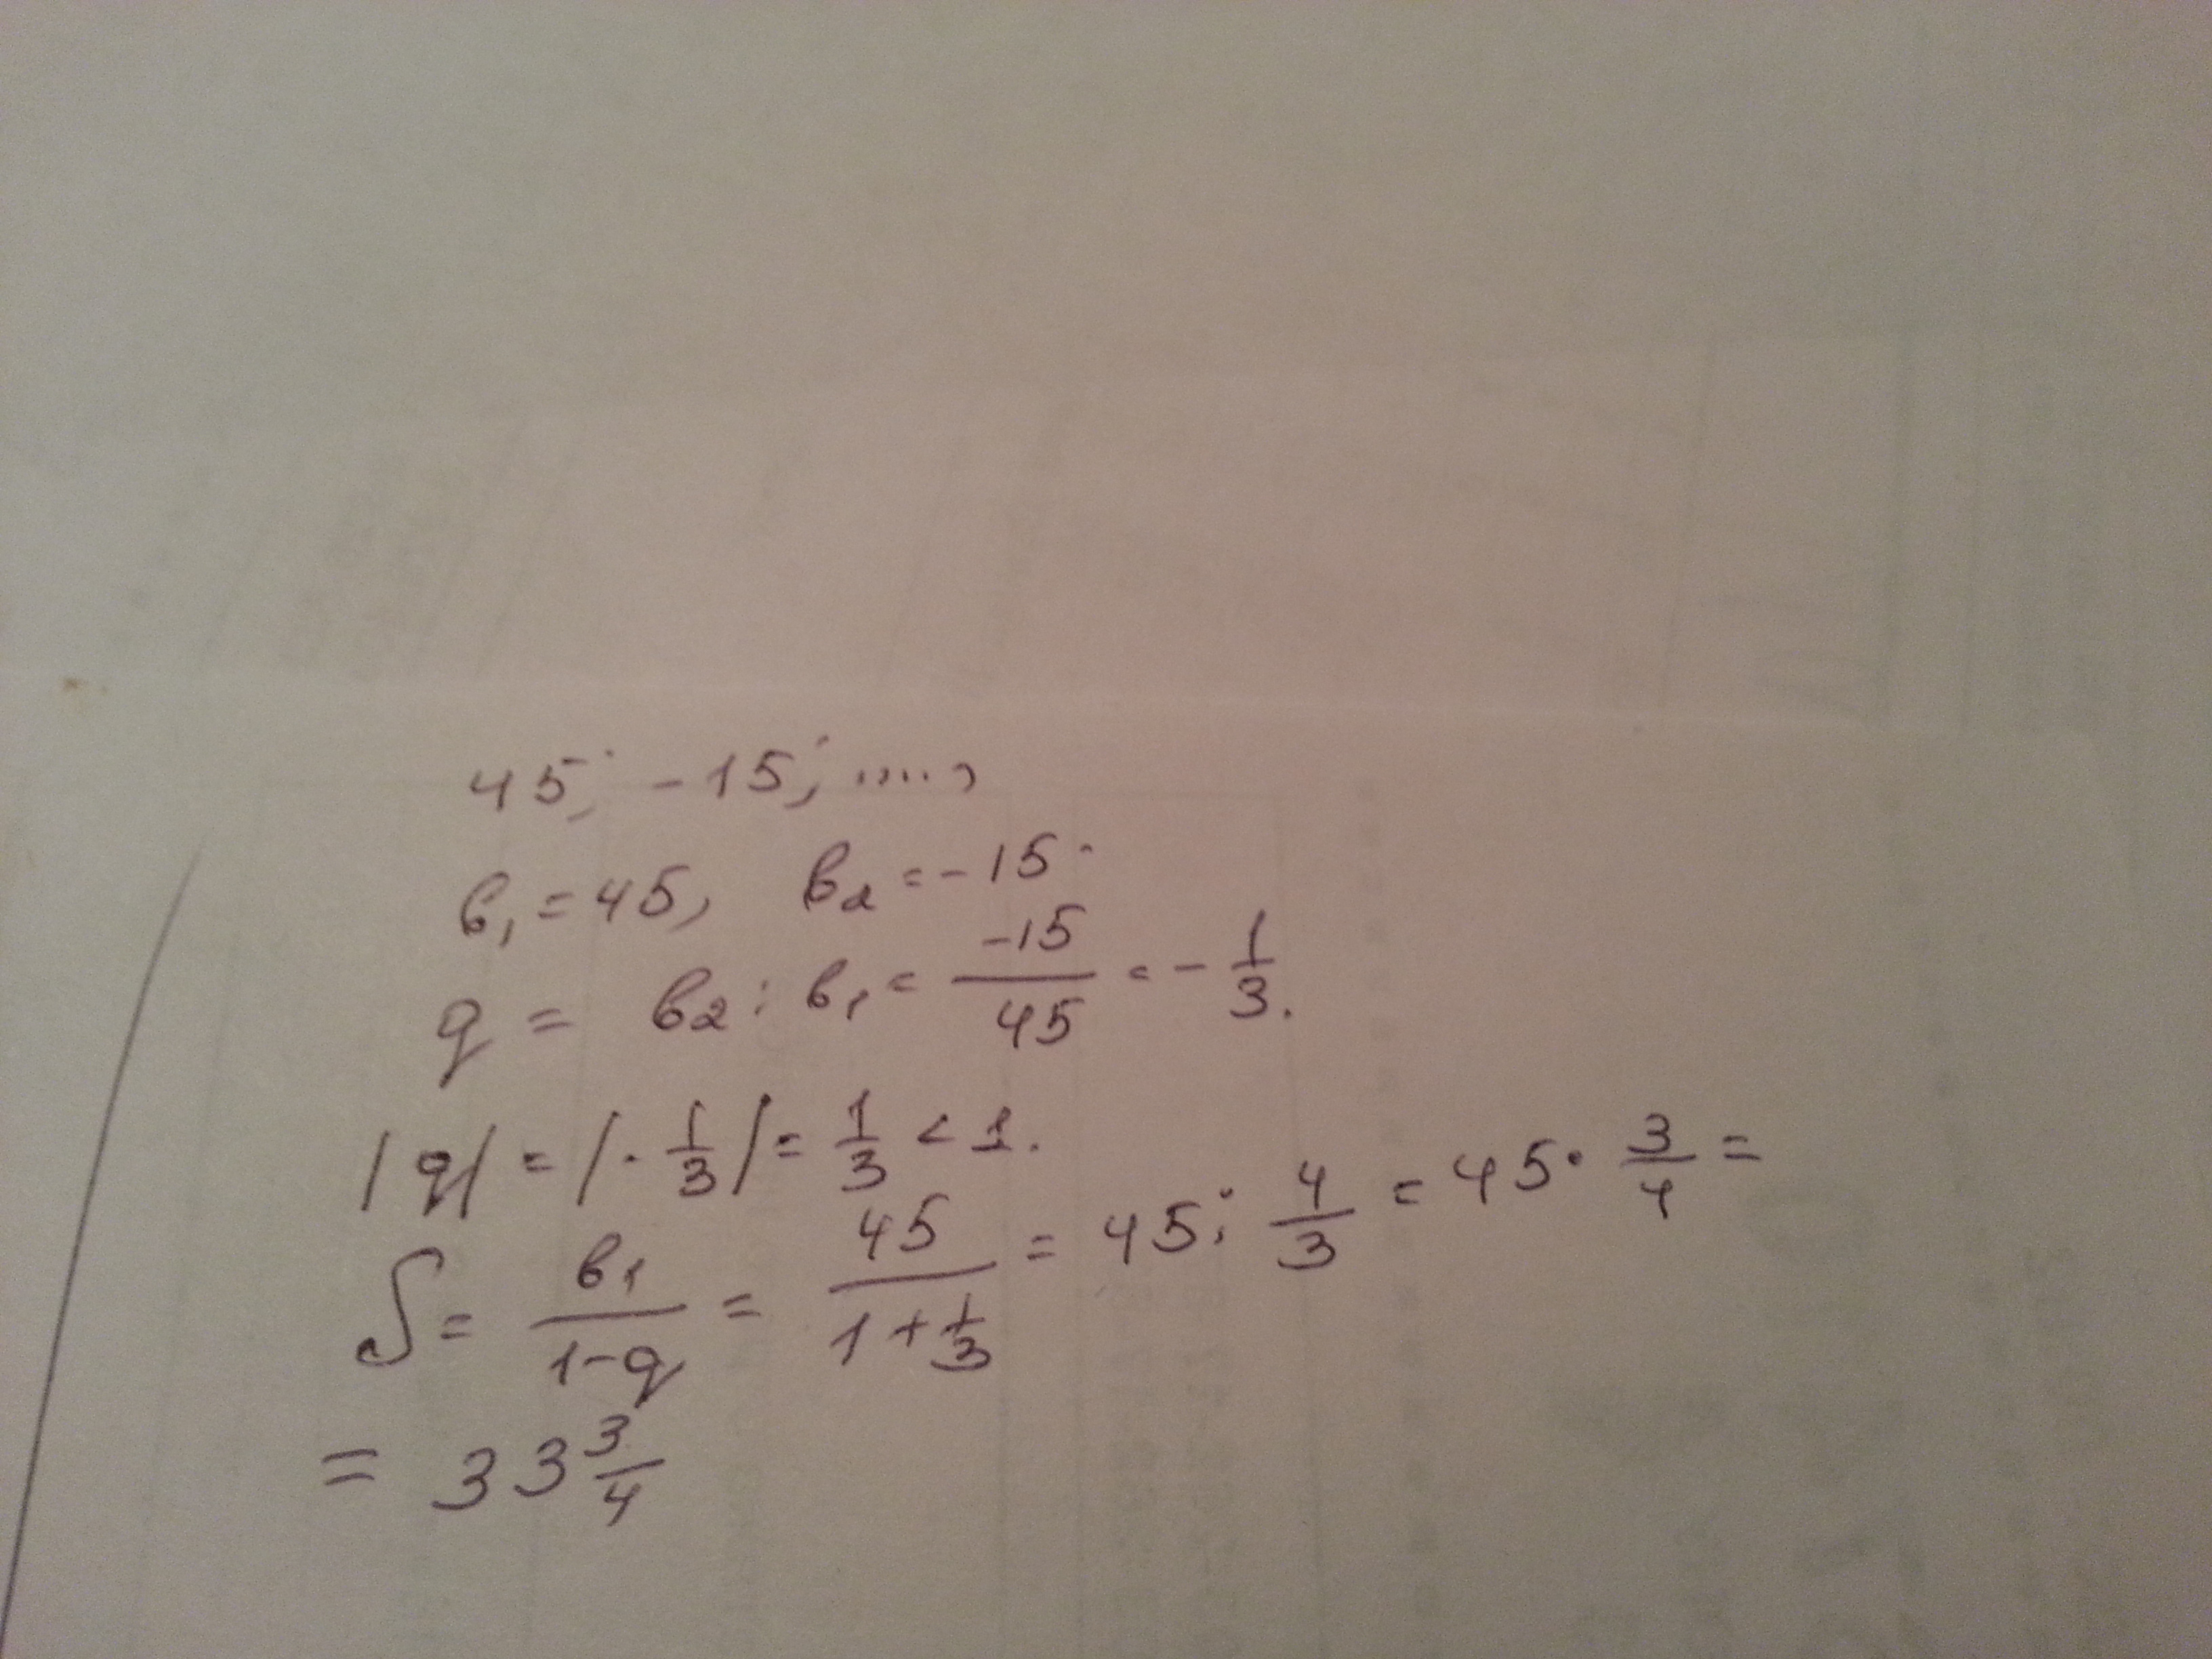 45; -15; .....,
b₁ = 45, b₂ = -15.
q = b₂ : b₁ = -15/45 = - 1/3.
|q| = |- 1/3| = 1/3 < 1.
S = b₁/(1-q) = 45/(1+1/3) = 45 : 4/3 = 45 · 3/4 =
= 33 3/4